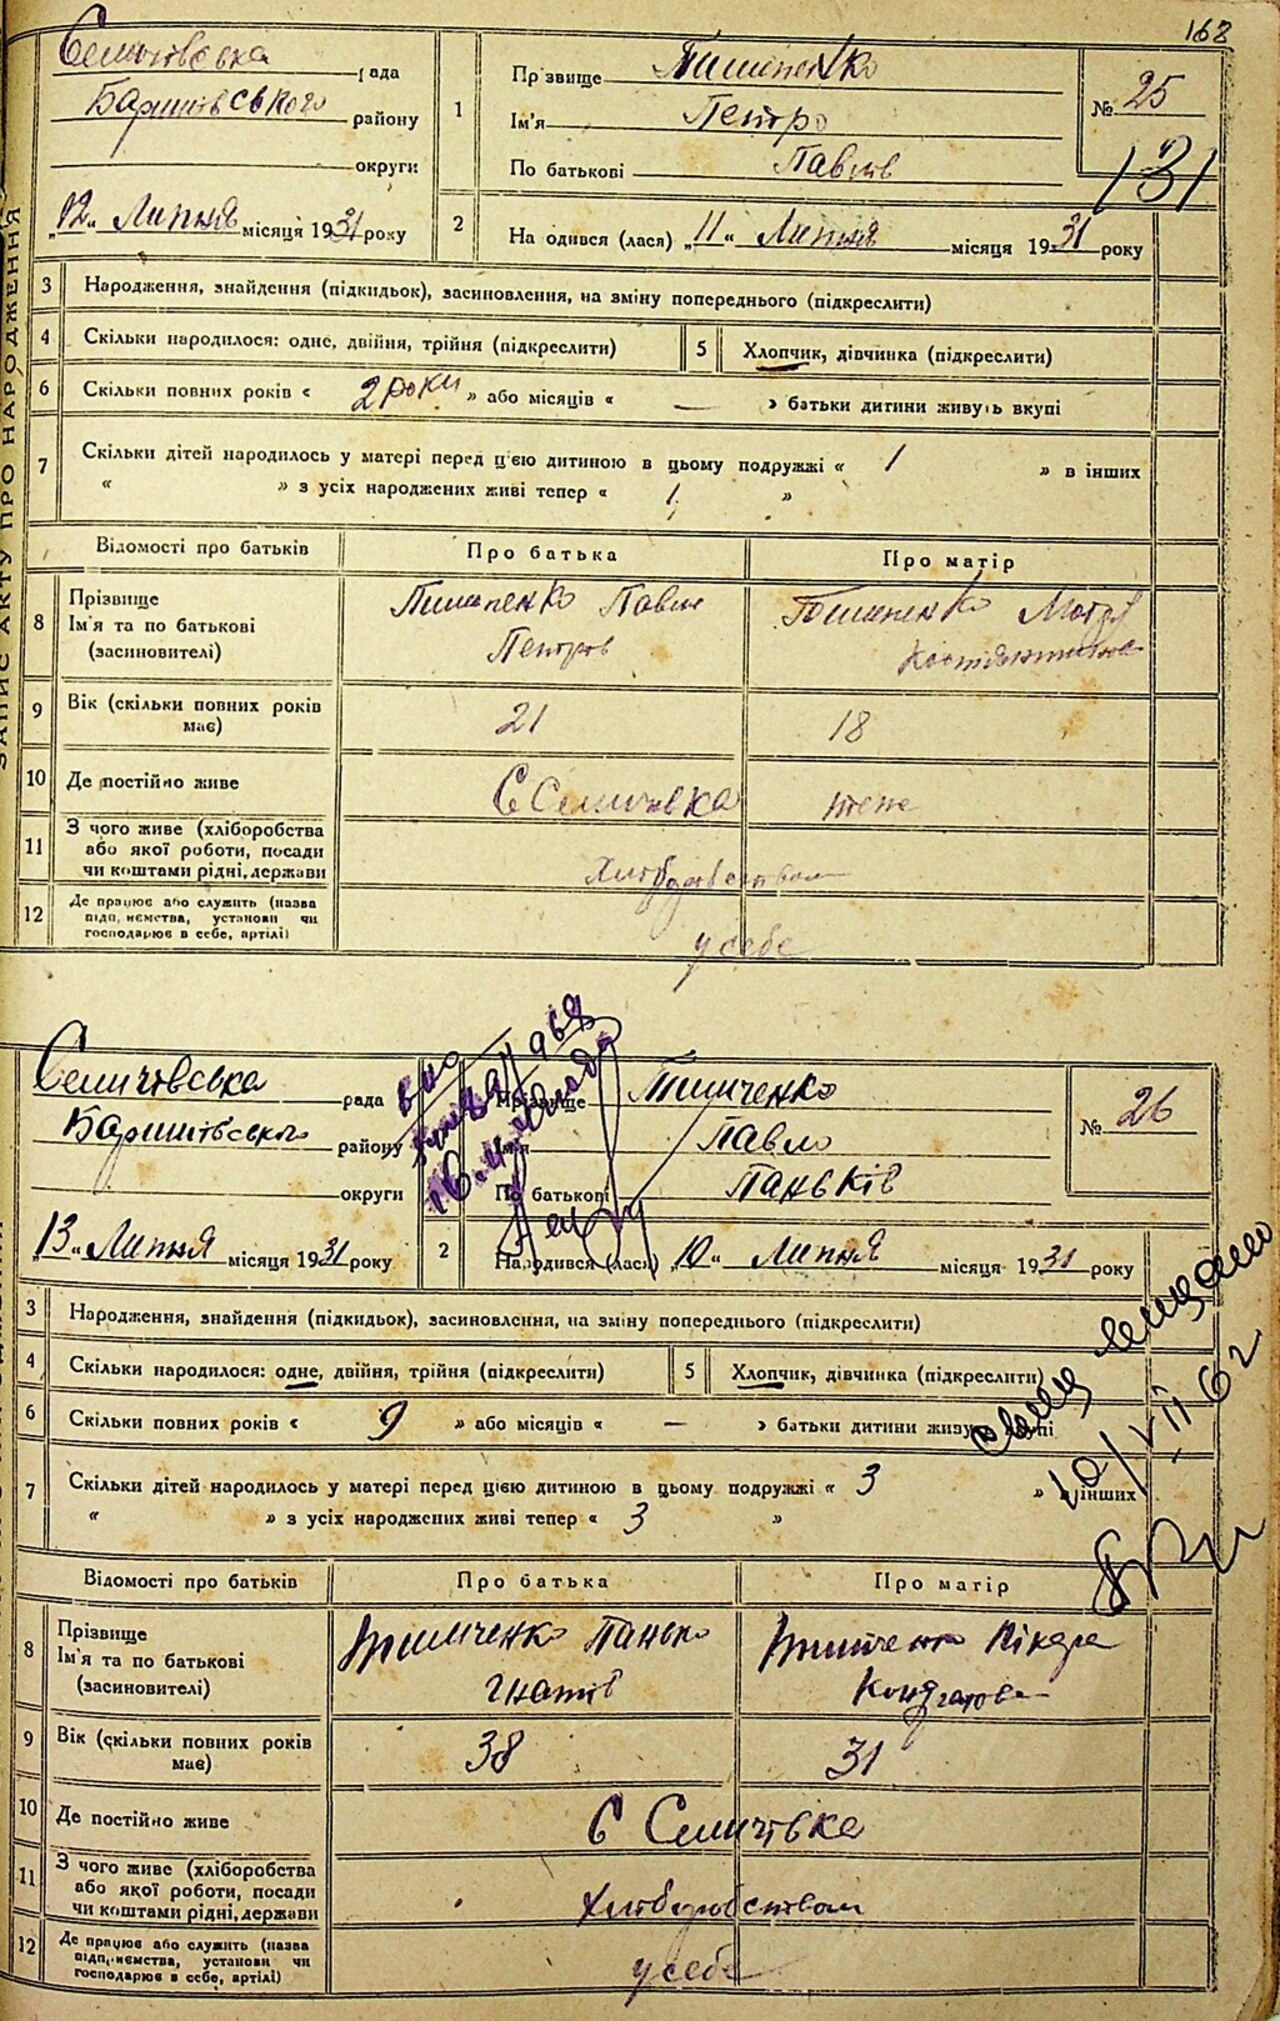 168
Селичівська рада
Баришівського району
округи
„12“ Липня місяця 1931 року
1
Прізвище Пилипенко
Ім'я Петро
По батькові Павлів
№ 25
131
2
Народився (лася) „11“ Липня місяця 1931 року
ЗАПИС АКТУ ПРО НАРОДЖЕННЯ
3 Народження, знайдення (підкидьок), засиновлення, на зміну попереднього (підкреслити)
4 Скільки народилося: одне, двійня, трійня (підкреслити)
5 Хлопчик, дівчинка (підкреслити)
6 Скільки повних років « 2 роки » або місяців « — » батьки дитини живуть вкупі
7 Скільки дітей народилось у матері перед цією дитиною в цьому подружжі « 1 » в інших
« » з усіх народжених живі тепер « 1 »
Відомості про батьків Про батька Про матір
8 Прізвище
Ім'я та по батькові
(засиновителі)
Пилипенко Павло
Петров
Пилипенко Мотря
Костянтинова
9 Вік (скільки повних років
має)
21 18
10 Де постійно живе С Селичівка теж
11 З чого живе (хліборобства
або якої роботи, посади
чи коштами рідні, держави
Хліборобством
12 Де працює або служить (назва
підприємства, установи чи
господарює в себе, артілі)
у себе
Селичівська рада
Баришівського району
округи
„13“ Липня місяця 1931 року
Прізвище Тимченко
Ім'я Павло
По батькові Паньків
№ 26
2
Народився (лася) „10“ Липня місяця 1931 року
3 Народження, знайдення (підкидьок), засиновлення, на зміну попереднього (підкреслити)
4 Скільки народилося: одне, двійня, трійня (підкреслити)
5 Хлопчик, дівчинка (підкреслити)
6 Скільки повних років « 9 » або місяців « — » батьки дитини живуть вкупі
7 Скільки дітей народилось у матері перед цією дитиною в цьому подружжі « 3 » в інших
« » з усіх народжених живі тепер « 3 »
10/VII 62
Відомості про батьків Про батька Про матір
8 Прізвище
Ім'я та по батькові
(засиновителі)
Тимченко Панько
Гнатів
Тимченко
Кондратова
9 Вік (скільки повних років
має)
38 31
10 Де постійно живе С Селичівка
11 З чого живе (хліборобства
або якої роботи, посади
чи коштами рідні, держави
Хліборобством
12 Де працює або служить (назва
підприємства, установи чи
господарює в себе, артілі)
у себе